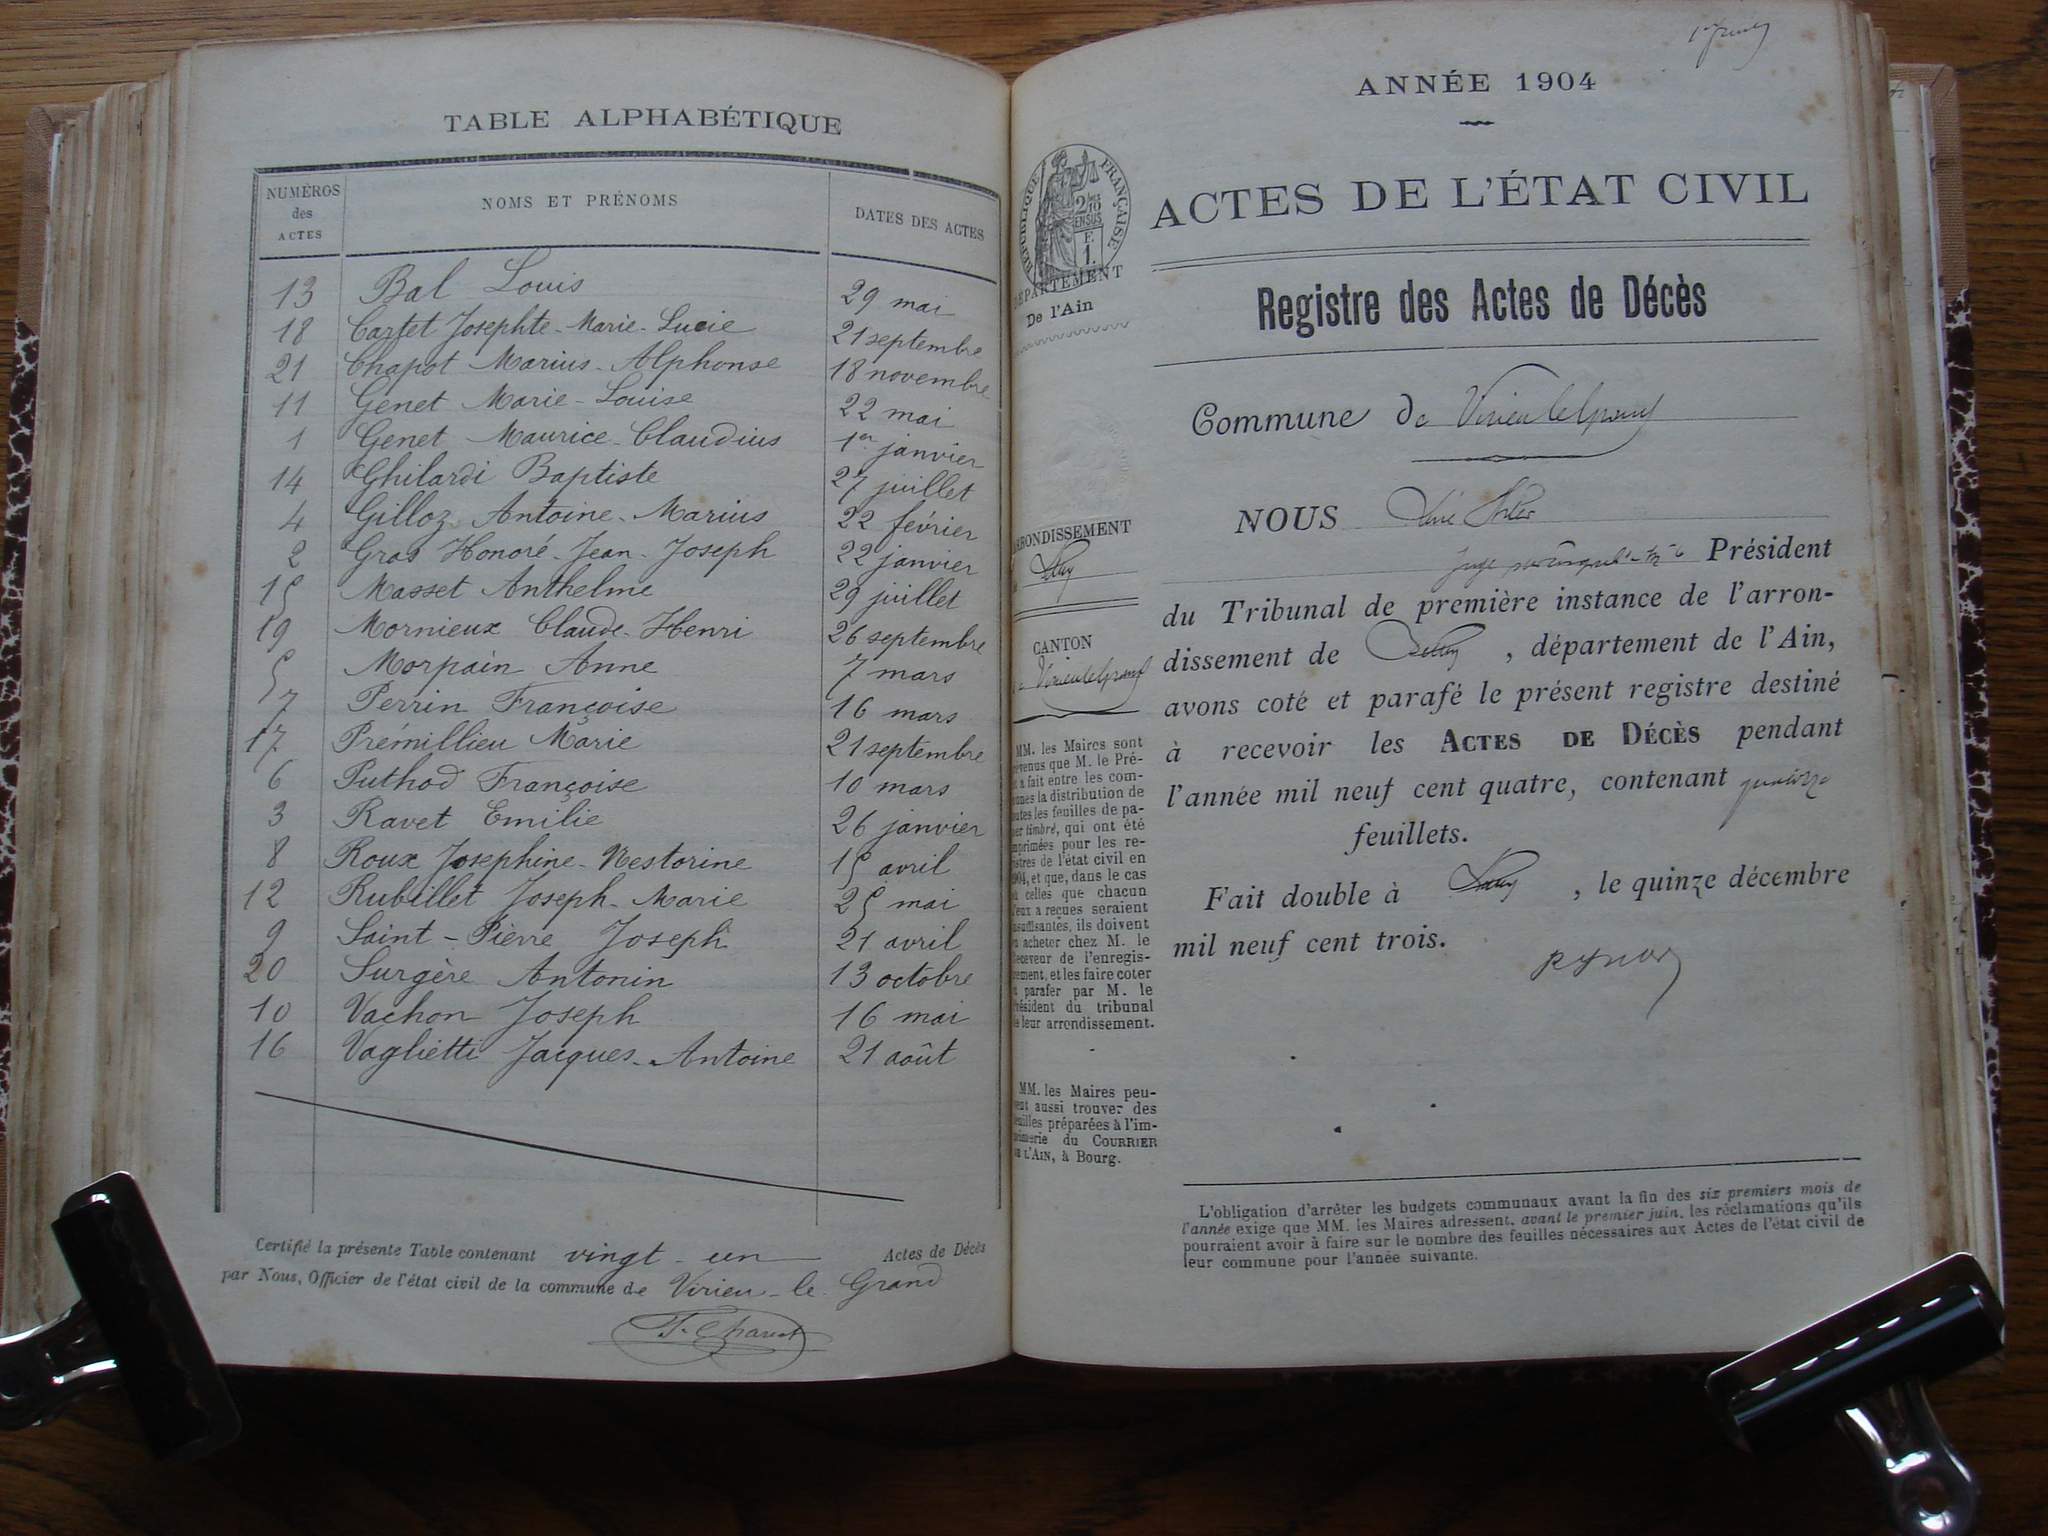 TABLE ALPHABÉTIQUE
NUMÉROS des ACTES NOMS ET PRÉNOMS DATES DES ACTES
13 Bal Louis 29 mai
18 Cartet Josephte-Marie-Lucie 21 septembre
21 Chapot Marius-Alphonse 18 novembre
11 Genet Marie-Louise 22 mai
1 Genet Maurice-Claudius 1er janvier
14 Ghilardi Baptiste 27 juillet
4 Gilloz Antoine-Marius 22 février
2 Gras Honoré-Jean-Joseph 22 janvier
15 Masset Anthelme 29 juillet
19 Mornieux Claude-Henri 26 septembre
5 Morpain Anne 7 mars
7 Perrin Françoise 16 mars
17 Prémillieu Marie 21 septembre
6 Puthod Françoise 10 mars
3 Ravet Emilie 26 janvier
8 Roux Josephine-Nestorine 15 avril
12 Rubillet Joseph-Marie 25 mai
9 Saint-Pierre Joseph 21 avril
20 Surgère Antonin 13 octobre
10 Vachon Joseph 16 mai
16 Vaglietti Jacques-Antoine 21 août
Certifié la présente Table contenant vingt-un Actes de Décès
par Nous, Officier de l'état civil de la commune de Virieu-le-Grand
ANNÉE 1904
ACTES DE L'ÉTAT CIVIL
RÉPUBLIQUE FRANÇAISE
2/10 EN SUS
F. 1.
DÉPARTEMENT
De l'Ain
Registre des Actes de Décès
Commune de Virieu le Grand
ARRONDISSEMENT
Belley
CANTON
Virieu le Grand
MM. les Maires sont
prévenus que M. le Pré-
fet a fait entre les com-
munes la distribution de
toutes les feuilles de pa-
pier timbré, qui ont été
imprimées pour les re-
gistres de l'état civil en
1904, et que, dans le cas
où celles que chacun
d'eux a reçues seraient
insuffisantes, ils doivent
en acheter chez M. le
Receveur de l'enregis-
trement, et les faire coter
et parafer par M. le
Président du tribunal
de leur arrondissement.
MM. les Maires peu-
vent aussi trouver des
feuilles préparées à l'im-
primerie du COURRIER
DE L'AIN, à Bourg.
NOUS
Juge Président
du Tribunal de première instance de l'arron-
dissement de Belley, département de l'Ain,
avons coté et parafé le présent registre destiné
à recevoir les ACTES DE DÉCÈS pendant
l'année mil neuf cent quatre, contenant quatorze
feuillets.
Fait double à Belley, le quinze décembre
mil neuf cent trois.
L'obligation d'arrêter les budgets communaux avant la fin des six premiers mois de
l'année exige que MM. les Maires adressent, avant le premier juin, les réclamations qu'ils
pourraient avoir à faire sur le nombre des feuilles nécessaires aux Actes de l'état civil de
leur commune pour l'année suivante.